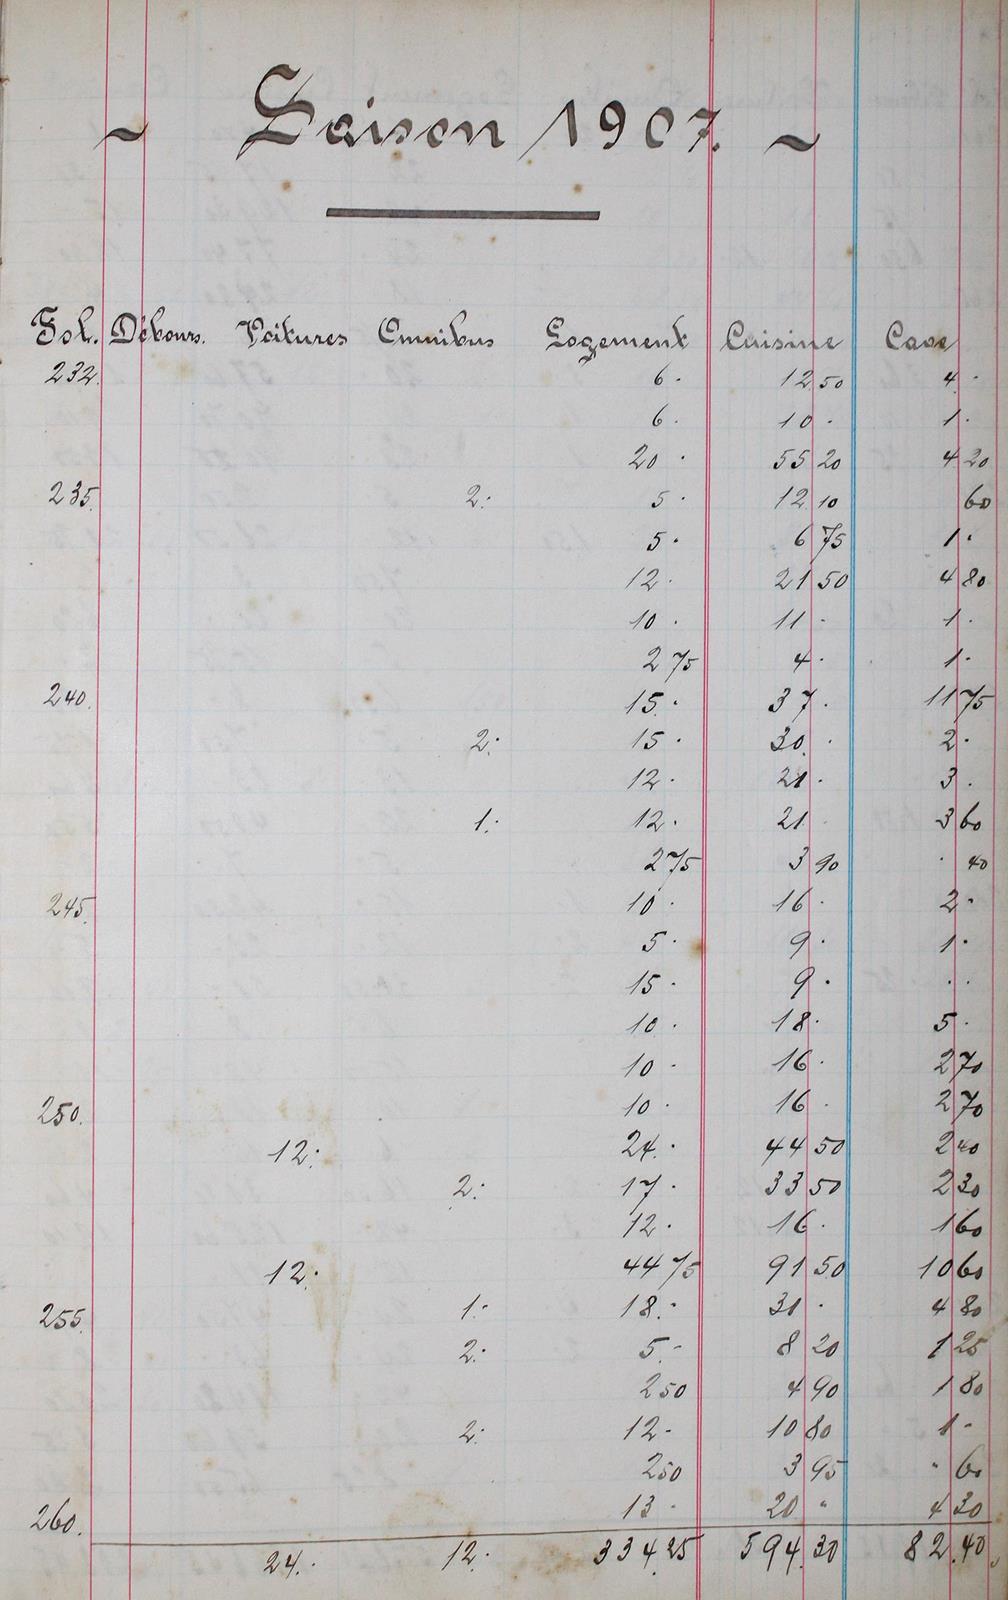 ~ Saison 1907. ~
Fol. Débours. Voitures Omnibus Logement Cuisine Cave
232. 6. 12 50 4.
6. 10. 1.
20. 55 20 4 20
235. 2. 5. 12 10 60
5. 6 75 1.
12. 21 50 4 80
10. 11. 1.
2 75 4. 1.
240. 15. 37. 11 75
2. 15. 30. 2.
12. 21. 3.
1. 12. 21 3 60
2 75 3 90 . 40
245. 10. 16. 2.
5. 9. 1.
15. 9. . .
10. 18. 5.
10. 16. 2 70
250. 10. 16. 2 70
12. 24. 44 50 2 40
2. 17. 33 50 2 30
12. 16. 1 60
12. 44 75 91 50 10 60
255. 1. 18. 31. 4 80
2. 5.- 8 20 1 25
2 50 4 90 1 80
2. 12- 10 80 1-
2 50 3 95 " 60
260. 13. 20 " 4 30
24. 12. 334.25 594.30 82.40